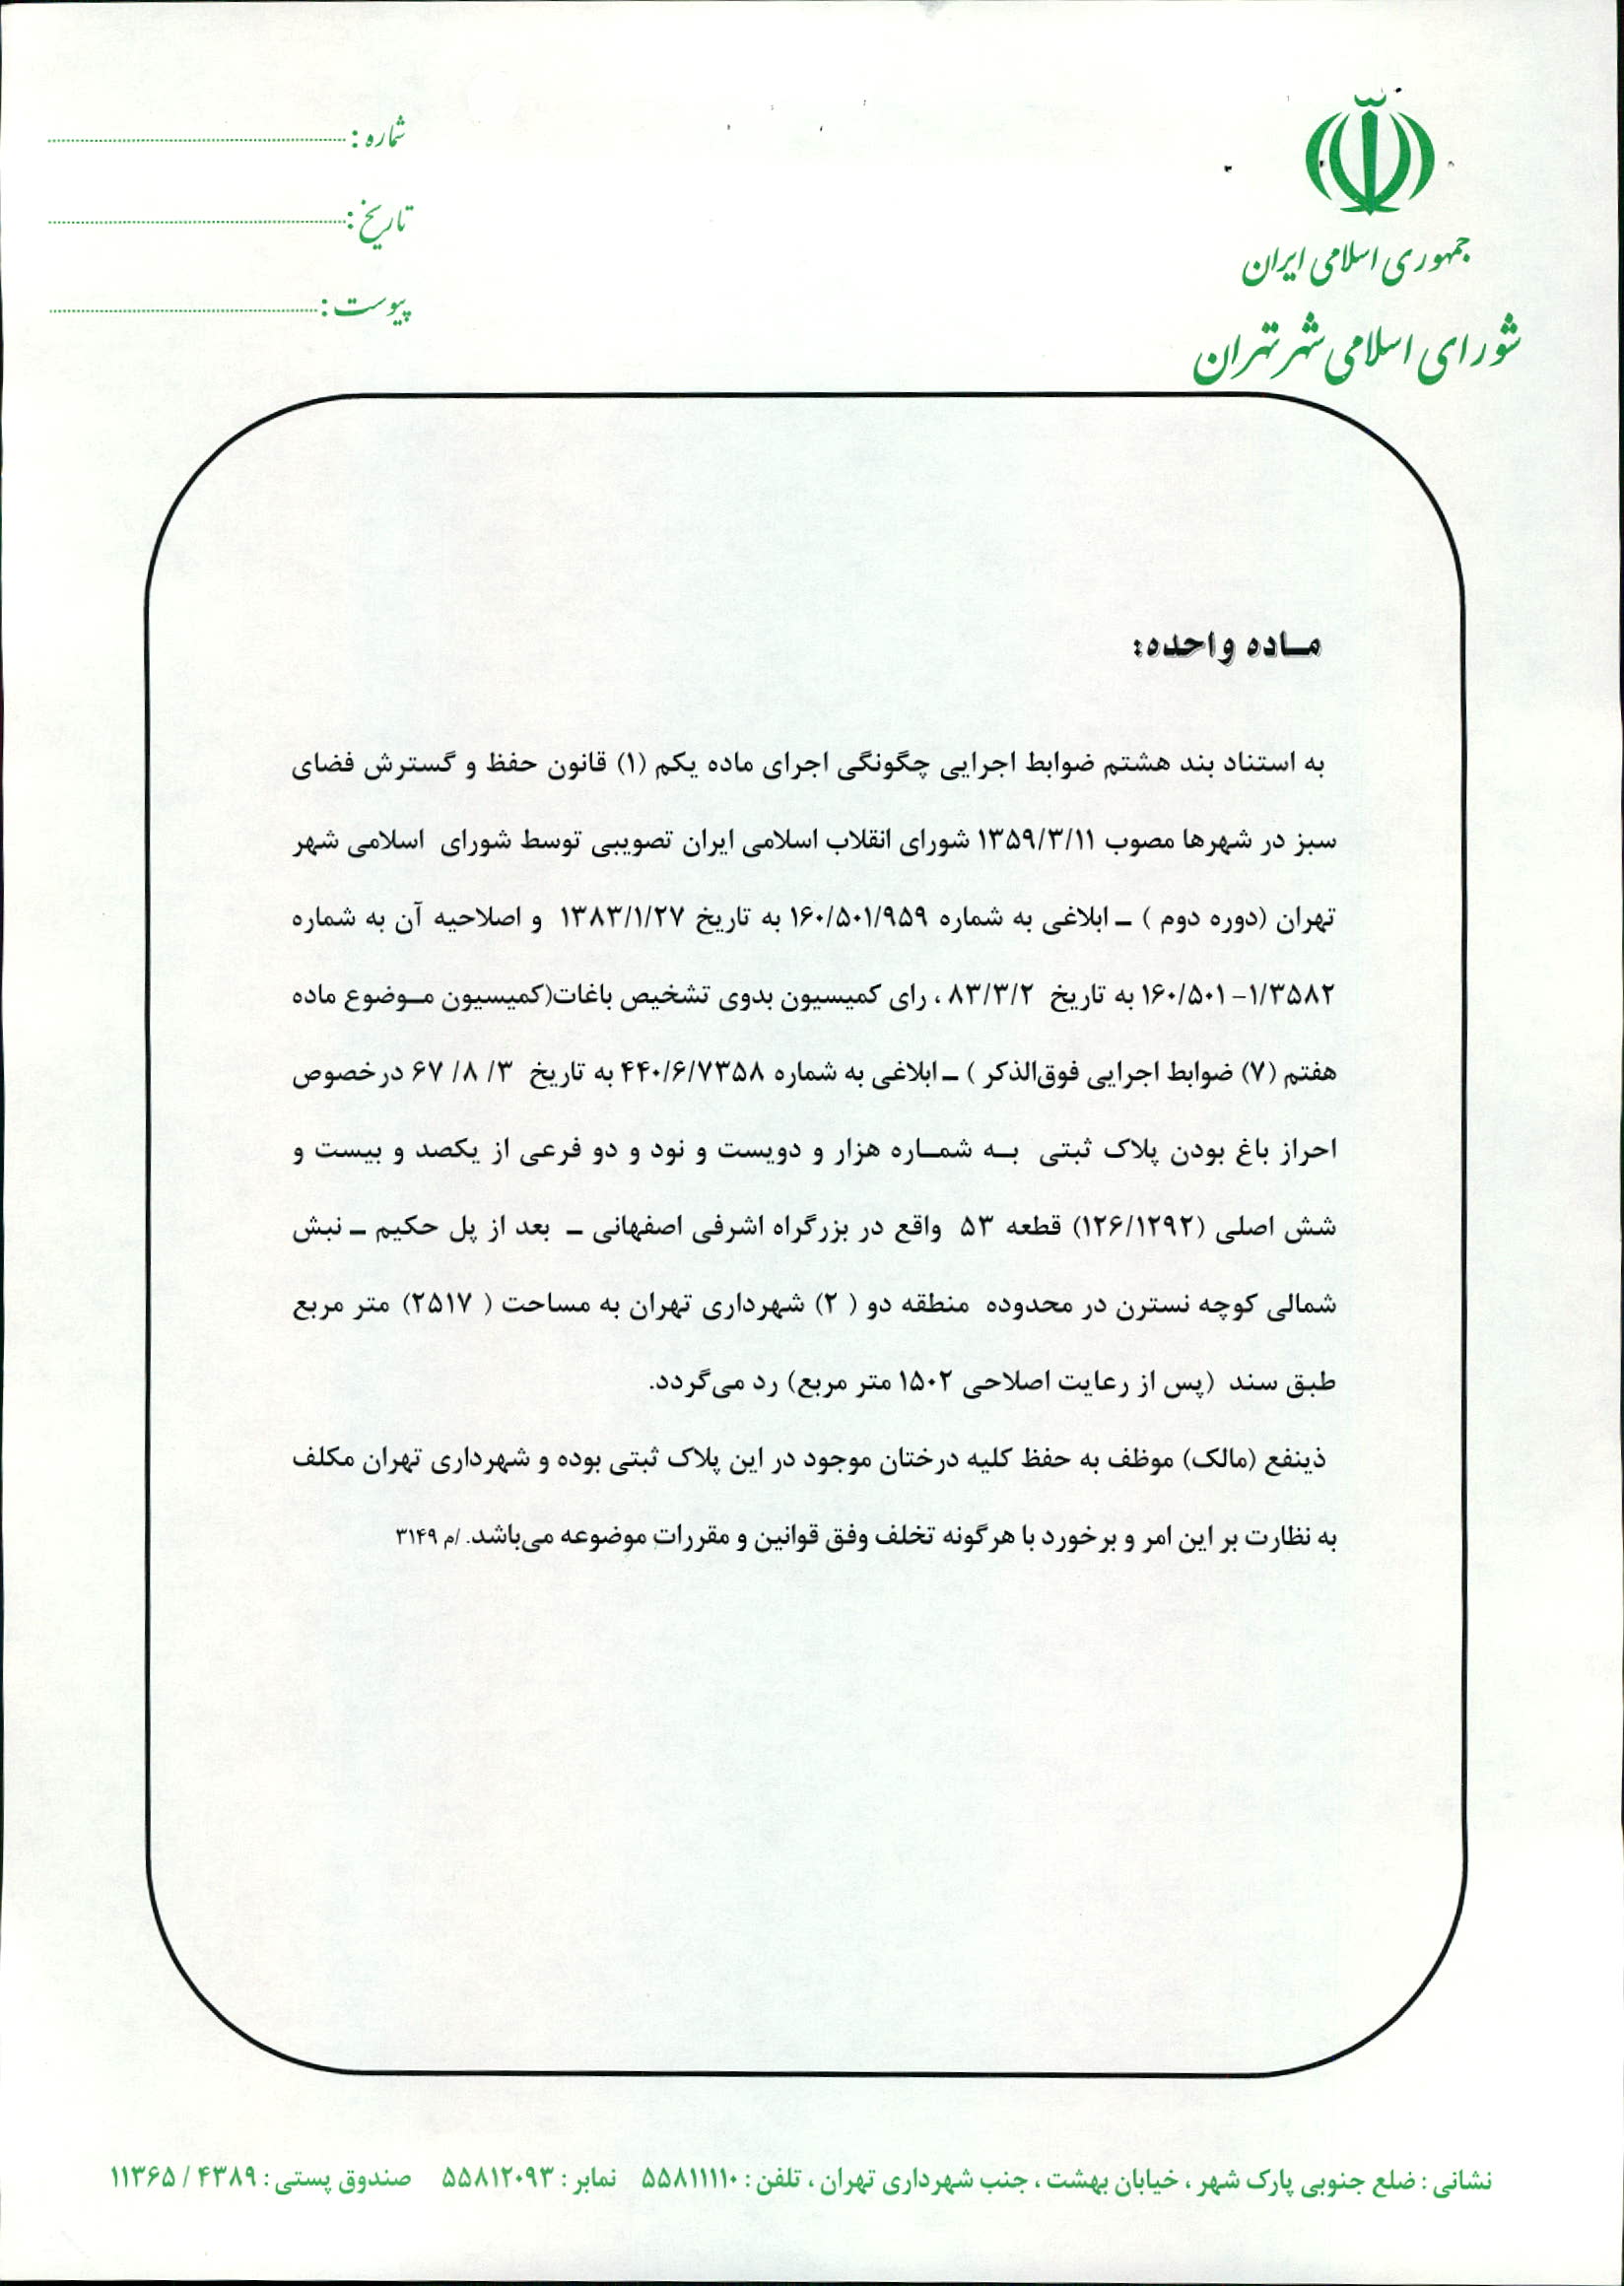 جمهوری اسلامی ایران
شورای اسلامی شهر تهران
شماره :
تاریخ :
پیوست :
مــاده واحده:
به استناد بند هشتم ضوابط اجرایی چگونگی اجرای ماده یکم (۱) قانون حفظ و گسترش فضای
سبز در شهرها مصوب ۱۳۵۹/۳/۱۱ شورای انقلاب اسلامی ایران تصویبی توسط شورای اسلامی شهر
تهران (دوره دوم ) ـ ابلاغی به شماره ۱۶۰/۵۰۱/۹۵۹ به تاریخ ۱۳۸۳/۱/۲۷ و اصلاحیه آن به شماره
۱۶۰/۵۰۱-۱/۳۵۸۲ به تاریخ ۸۳/۳/۲ ، رای کمیسیون بدوی تشخیص باغات(کمیسیون مـوضوع ماده
هفتم (۷) ضوابط اجرایی فوق‌الذکر ) ـ ابلاغی به شماره ۴۴۰/۶/۷۳۵۸ به تاریخ ۳/ ۸/ ۶۷ درخصوص
احراز باغ بودن پلاک ثبتی بـه شمـاره هزار و دویست و نود و دو فرعی از یکصد و بیست و
شش اصلی (۱۲۶/۱۲۹۲) قطعه ۵۳ واقع در بزرگراه اشرفی اصفهانی ـ بعد از پل حکیم ـ نبش
شمالی کوچه نسترن در محدوده منطقه دو ( ۲) شهرداری تهران به مساحت ( ۲۵۱۷) متر مربع
طبق سند (پس از رعایت اصلاحی ۱۵۰۲ متر مربع) رد می‌گردد.
ذینفع (مالک) موظف به حفظ کلیه درختان موجود در این پلاک ثبتی بوده و شهرداری تهران مکلف
به نظارت بر این امر و برخورد با هرگونه تخلف وفق قوانین و مقررات موضوعه می‌باشد. /م ۳۱۴۹
نشانی : ضلع جنوبی پارک شهر ، خیابان بهشت ، جنب شهرداری تهران ، تلفن : ۵۵۸۱۱۱۱۰ نمابر : ۵۵۸۱۲۰۹۳ صندوق پستی : ۴۳۸۹ / ۱۱۳۶۵